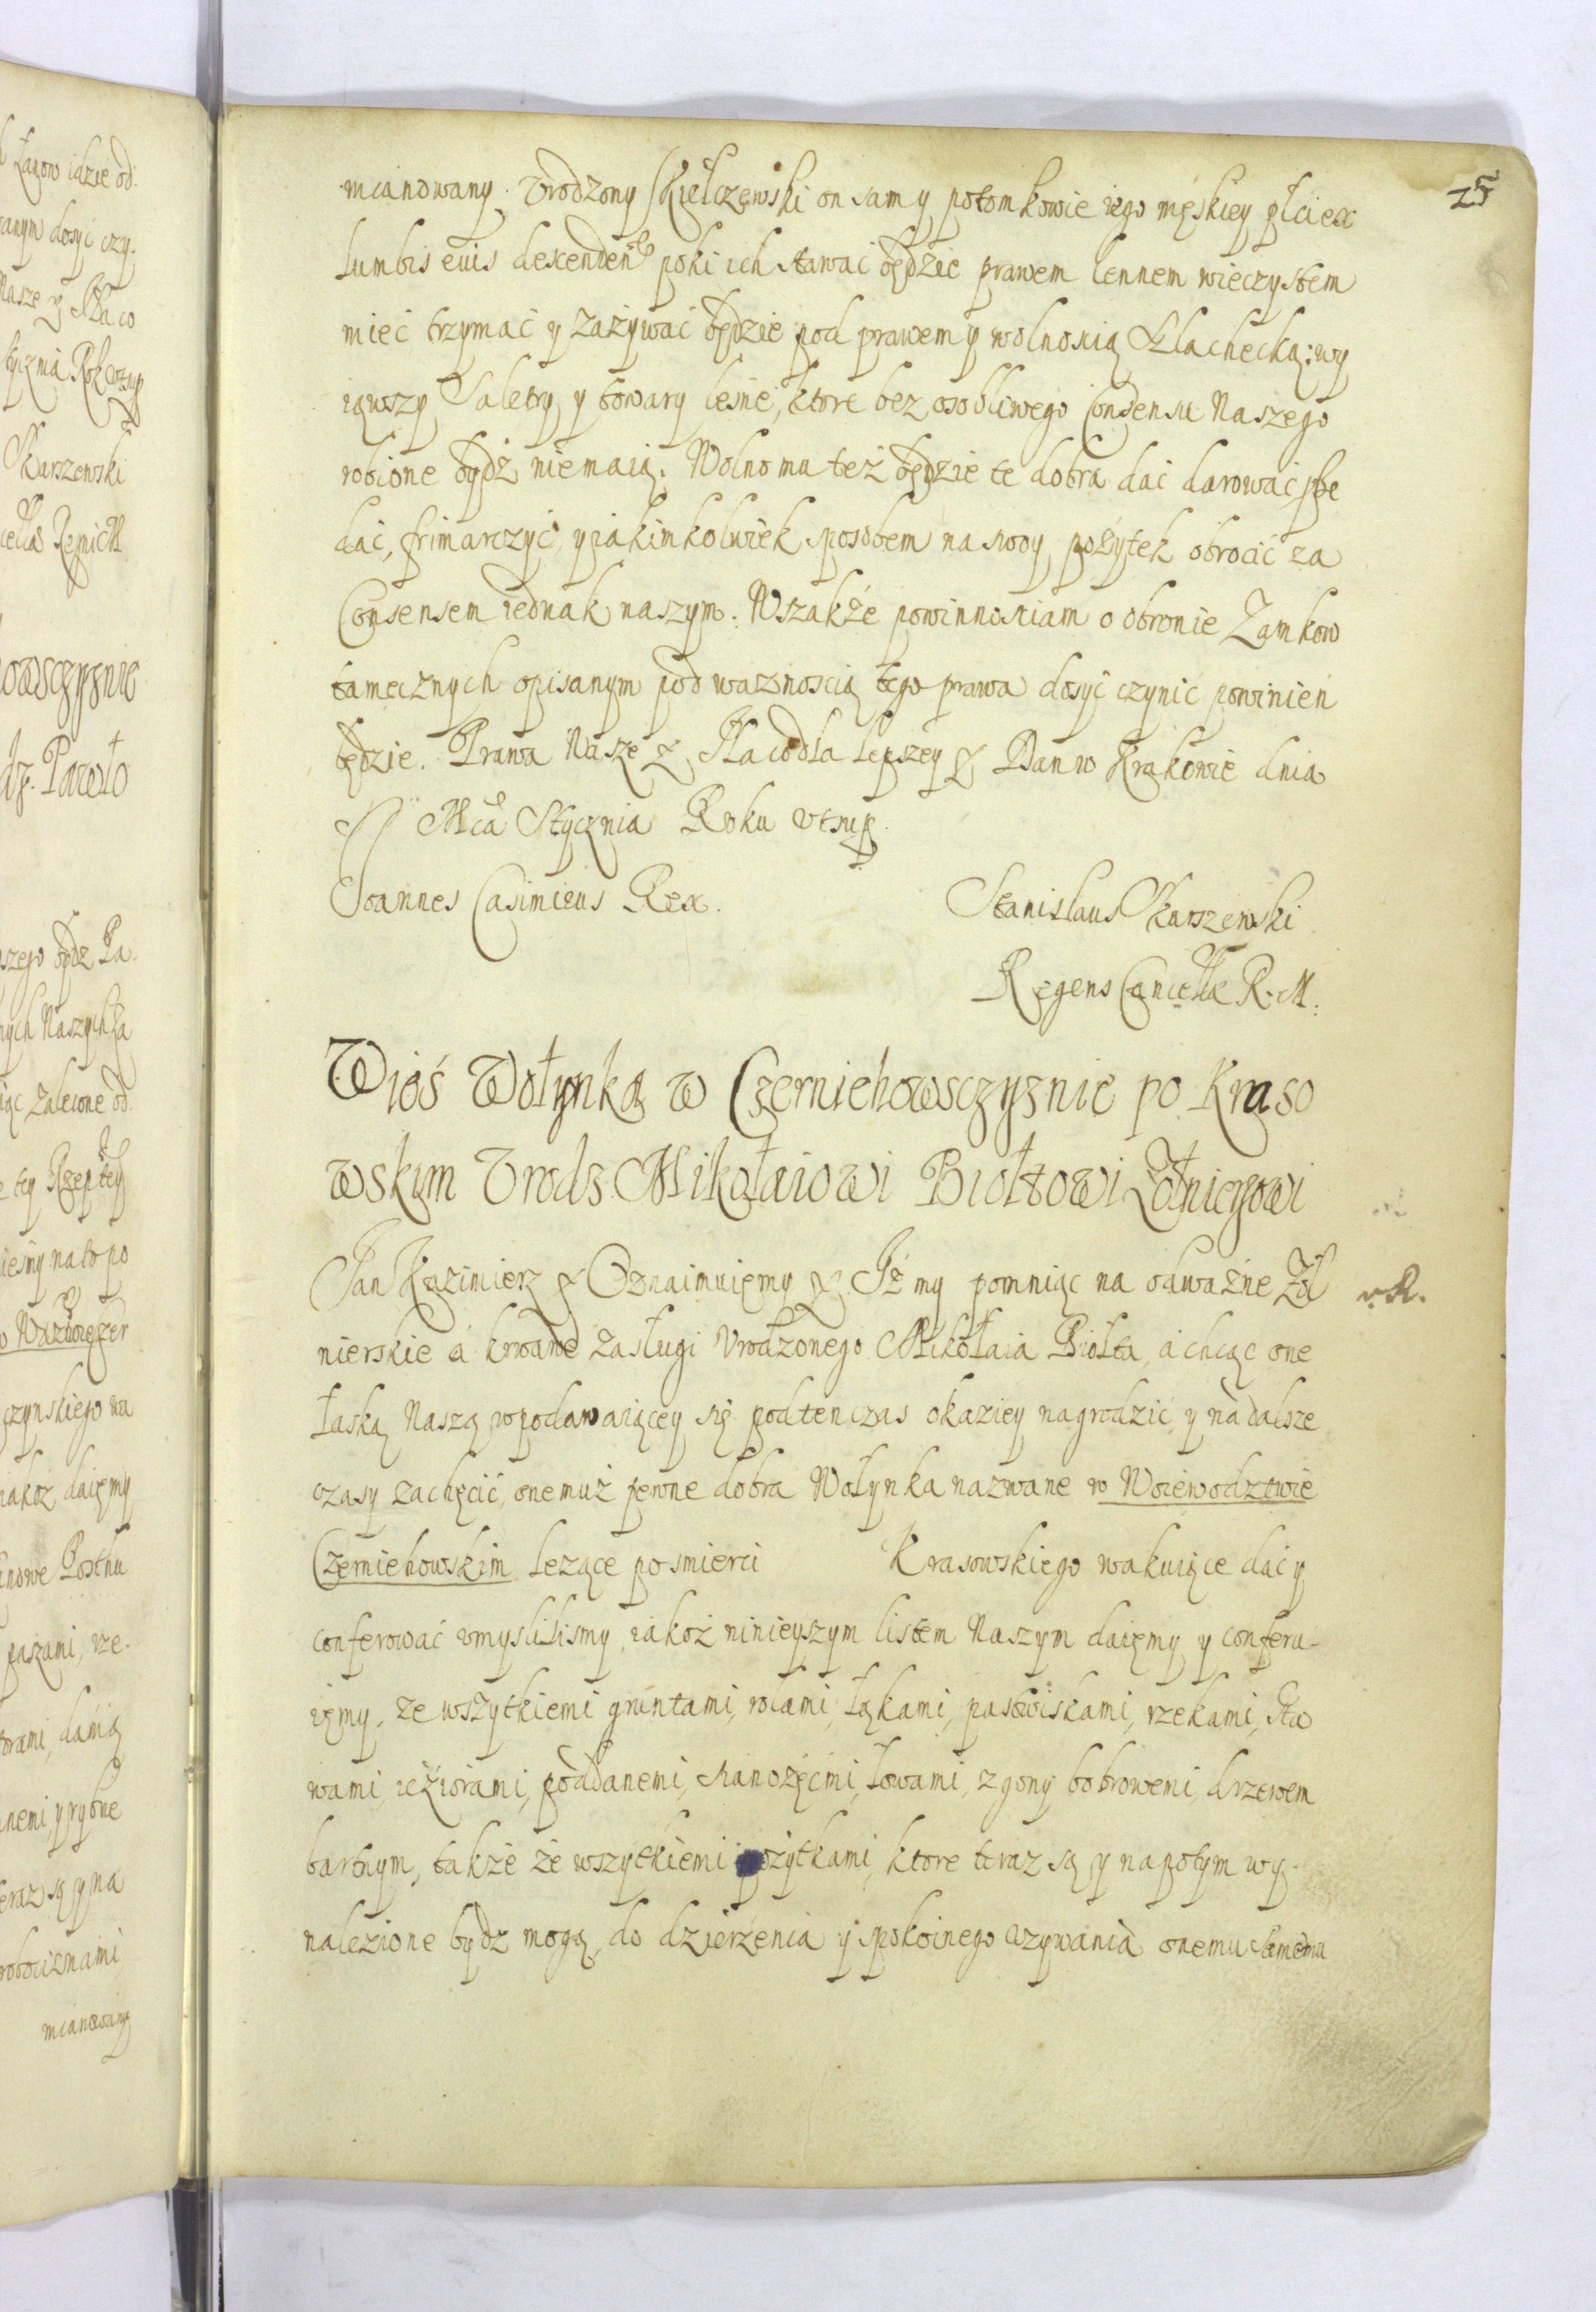 25
mianowany. Vrodzony Kiełczewski on sam y potomkowie iego męskiey płci ex
lumbis euis descenden poki ich stawać będzie prawem lennem wieczystem
mieć trzymać y zażywać będzie pod prawem y wolnoscią szlachecką: wy
iąwszy Saletry y towary lesne, ktore bez osobliwego Consensu Naszego
robione bydź niemaią. Wolno mu też będzie te dobra dać darować prze
dać, frimarczyć, y iakimkolwiek sposobem na swoy pożytek obrocić za
Consensem iednak naszym. Wszakże powinnosciam o obronie Zamkow
tamecznych opisanym pod waznoscią tego prawa dosyć czynić powinien
będzie. Prawa Nasze & Na co dla lepszey & Dan w Krakowie dnia
Mca Stycznia Roku vt sup.
Ioannes Casimirus Rex.
Stanislaus Skarszewski
Regens Cancell R. M.
Wioś Wołynką w Czerniehowsczyznie po Kraso
wskim Vrodz. Mikołaiowi Biołtowi Żołnierzowi
Jan Kazimierz & Oznaimuięmy & Iż my pomniąc na odważne Żoł
nierskie á krwawe zasługi Vrodzonego Mikołaia Biołta, a chcąc one
łaską Naszą w podawaiącey się podtenczas okaziey nagrodzić, y na dalsze
czasy zachęcić, onemuż pewne dobra Wołynka nazwane w Woiewodztwie
Czerniehowskim leżące po smierci Krasowskiego wakuiące dać y
conferować vmyslilismy, iakoż ninieyszym listem Naszym daięmy y conferu-
ięmy, ze wszytkiemi gruntami, rolami, łąkami, pastwiskami, rzekami, Sta
wami, ieźiorami, poddanemi, sianożęćmi, łowami, z gony bobrowemi, drzewem
bartnym, także ze wszytkiemi pożytkami, ktore teraz są y napotym wy-
nalezione bydz mogą, do dzierżenia y spokoinego vzywania onemu samemu